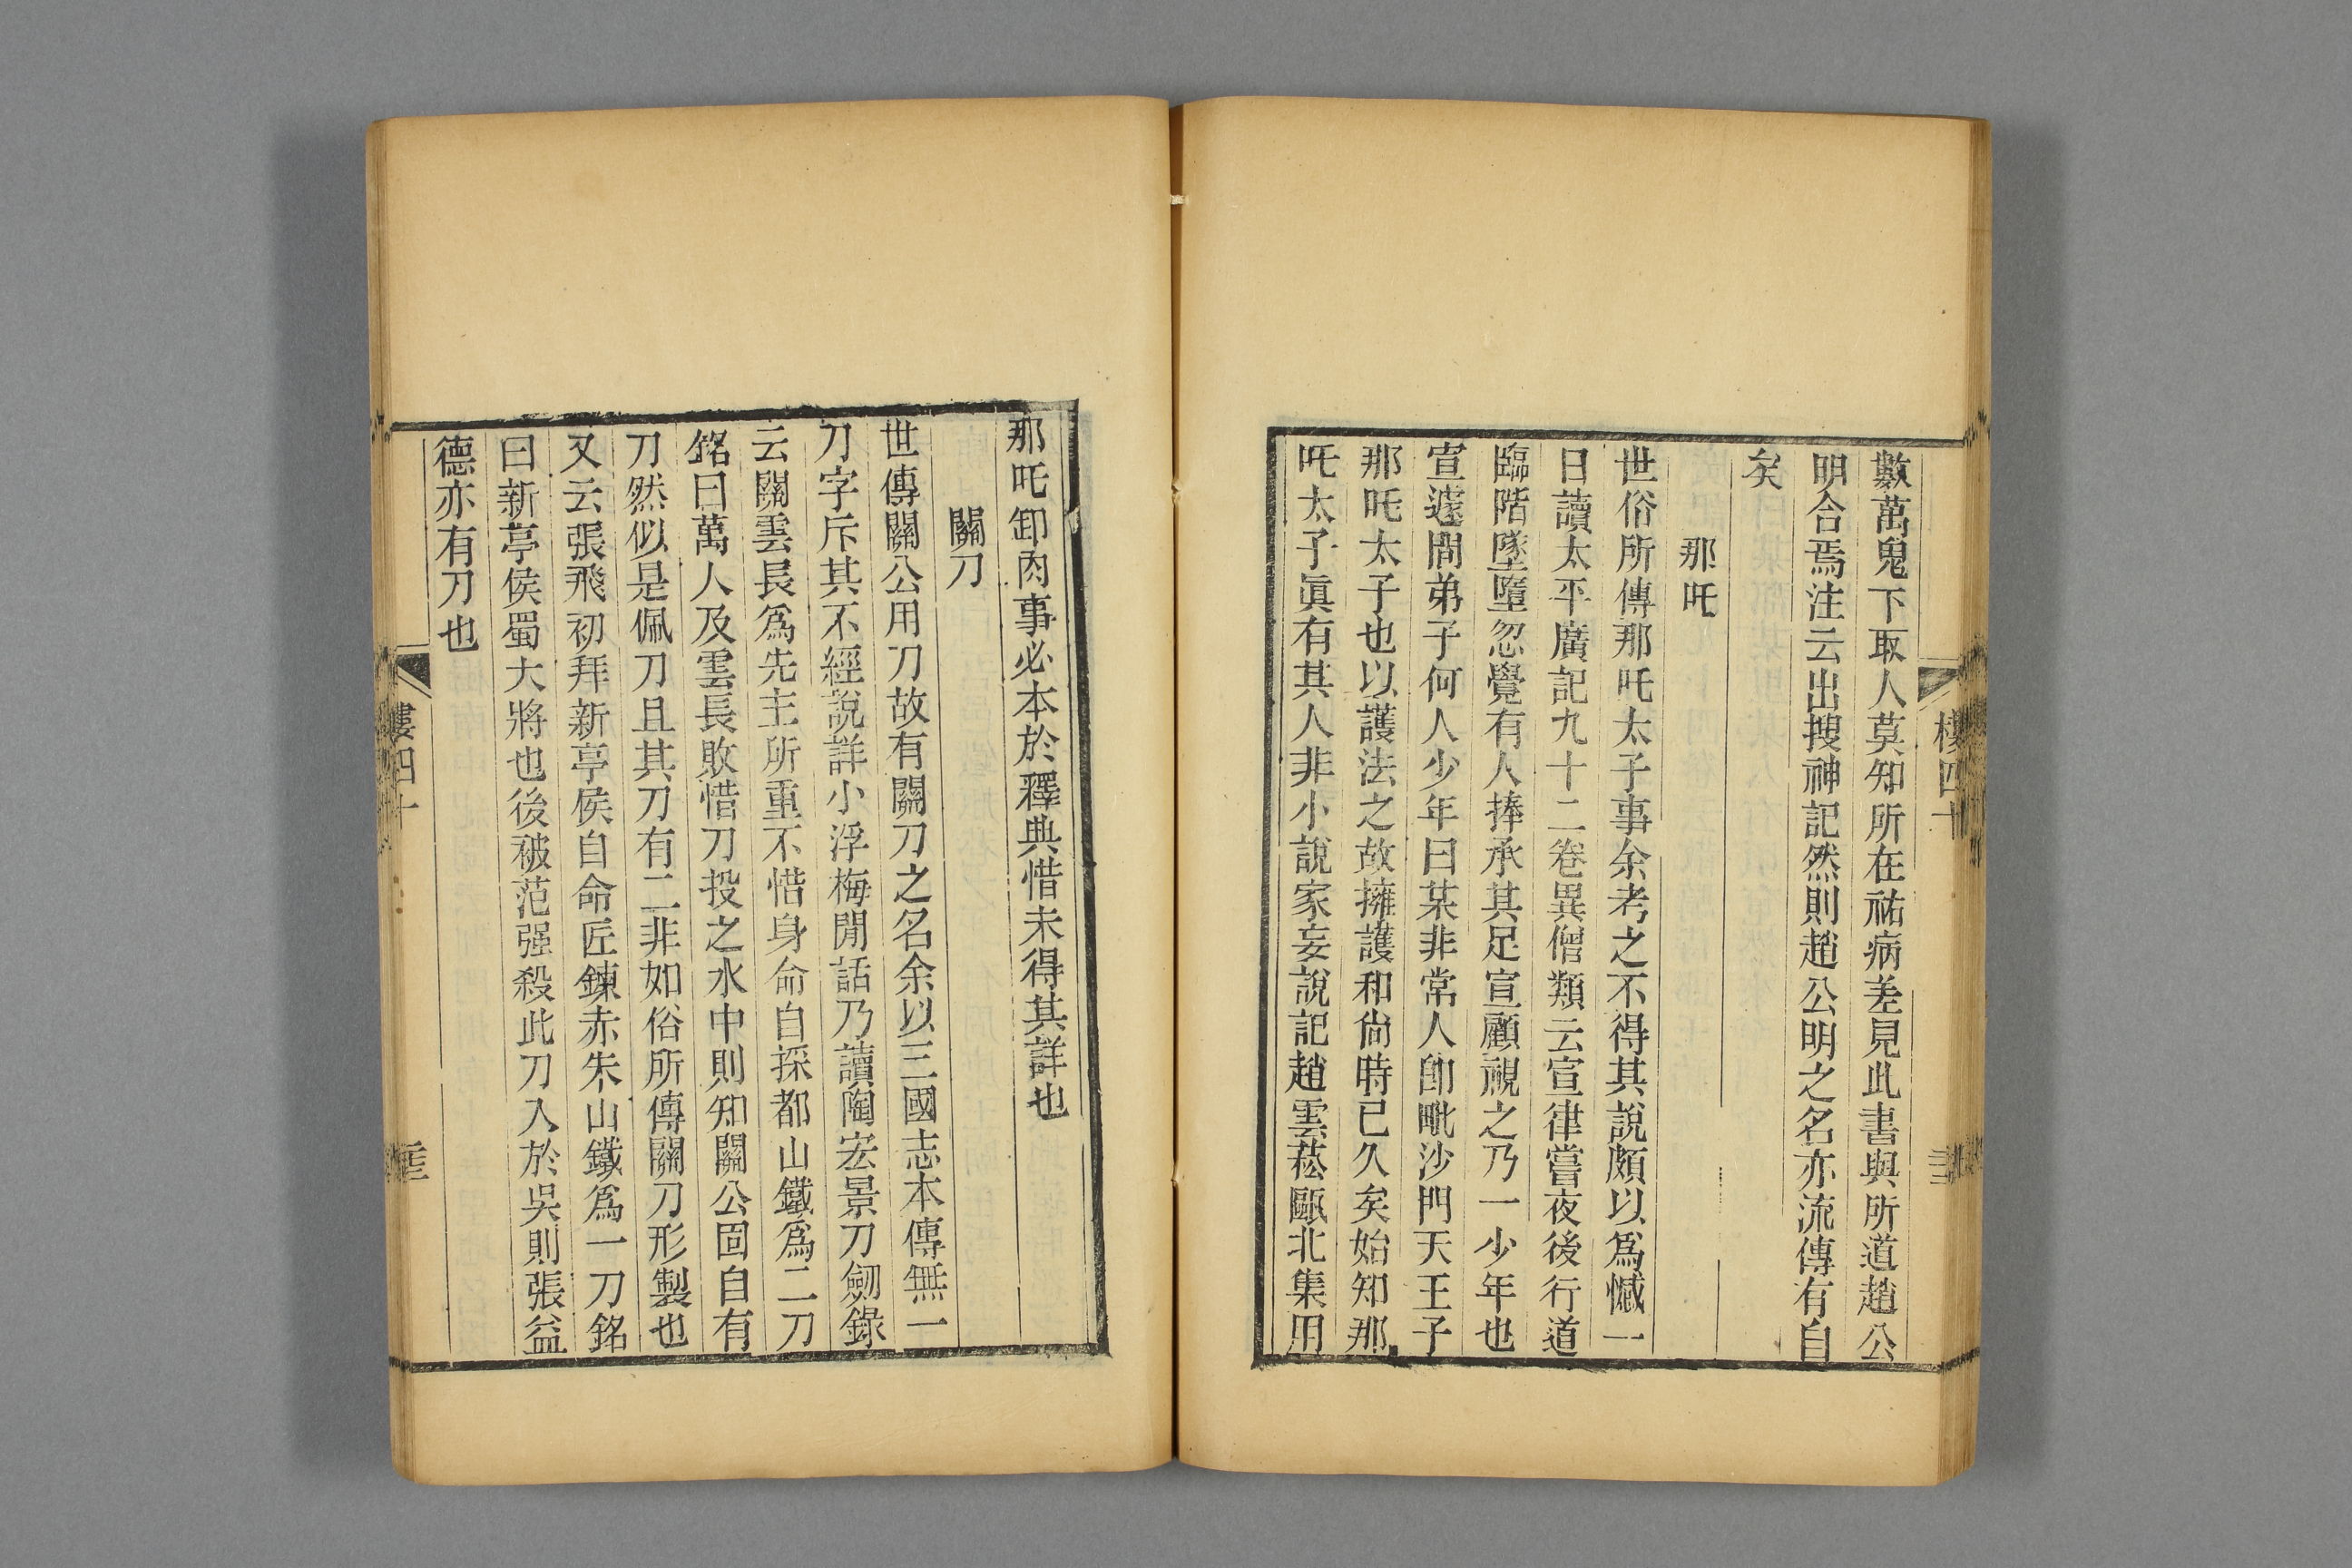 數萬鬼下取人莫知所在祐病差見此書與所道趙公
明合焉注云出搜神記然則趙公明之名亦流傳有自
矣
那吒
世俗所傳那吒太子事余考之不得其說頗以爲憾一
日讀太平廣記九十二卷異僧類云宣律嘗夜後行道
臨階墜墮忽覺有人捧承其足宣顧視之乃一少年也
宣遽問弟子何人少年曰某非常人卽毗沙門天王子
那吒太子也以護法之故擁護和尙時已久矣始知那
吒太子眞有其人非小說家妄說記趙雲菘甌北集用
樓四十
那吒卸肉事必本於釋典惜未得其詳也
關刀
世傳關公用刀故有關刀之名余以三國志本傳無一
刀字斥其不經說詳小浮梅閒話乃讀陶宏景刀劒錄
云關雲長爲先主所重不惜身命自採都山鐵爲二刀
銘曰萬人及雲長敗惜刀投之水中則知關公固自有
刀然似是佩刀且其刀有二非如俗所傳關刀形製也
又云張飛初拜新亭侯自命匠鍊赤朱山鐵爲一刀銘
曰新亭侯蜀大將也後被范强殺此刀入於吳則張益
德亦有刀也
樓四十